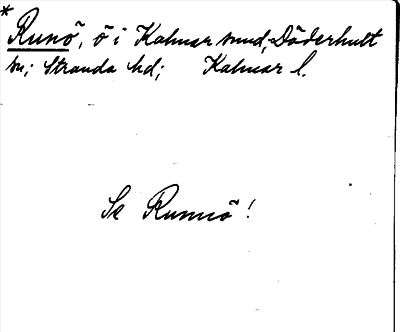 * Runö, ö i Kalmar sund, Döderhult
sn; Stranda hd; Kalmar l.
Se Runnö!